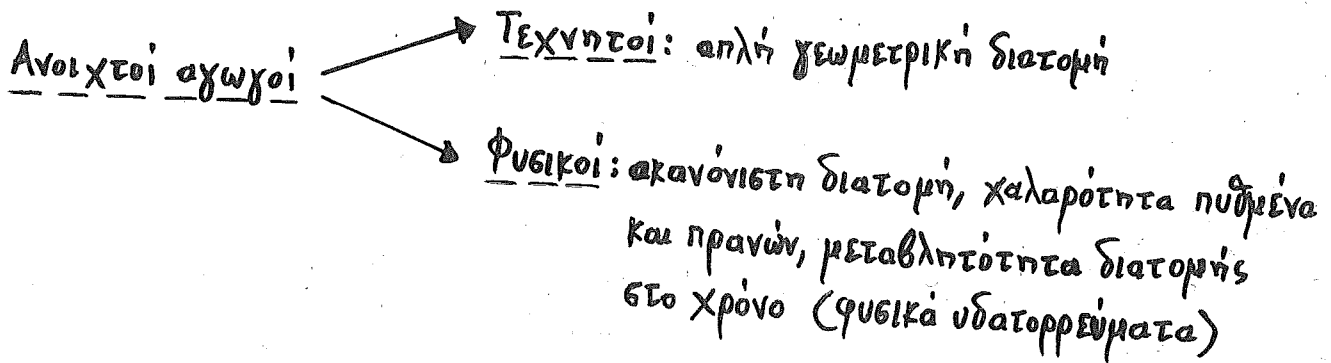 Τεχνητοί: απλή γεωμετρική διατομή
Ανοιχτοί αγωγοί
Φυσικοί: ακανόνιστη διατομή, χαλαρότητα πυθμένα
και πρανών, μεταβλητότητα διατομής
στο χρόνο (φυσικά υδατορρεύματα)